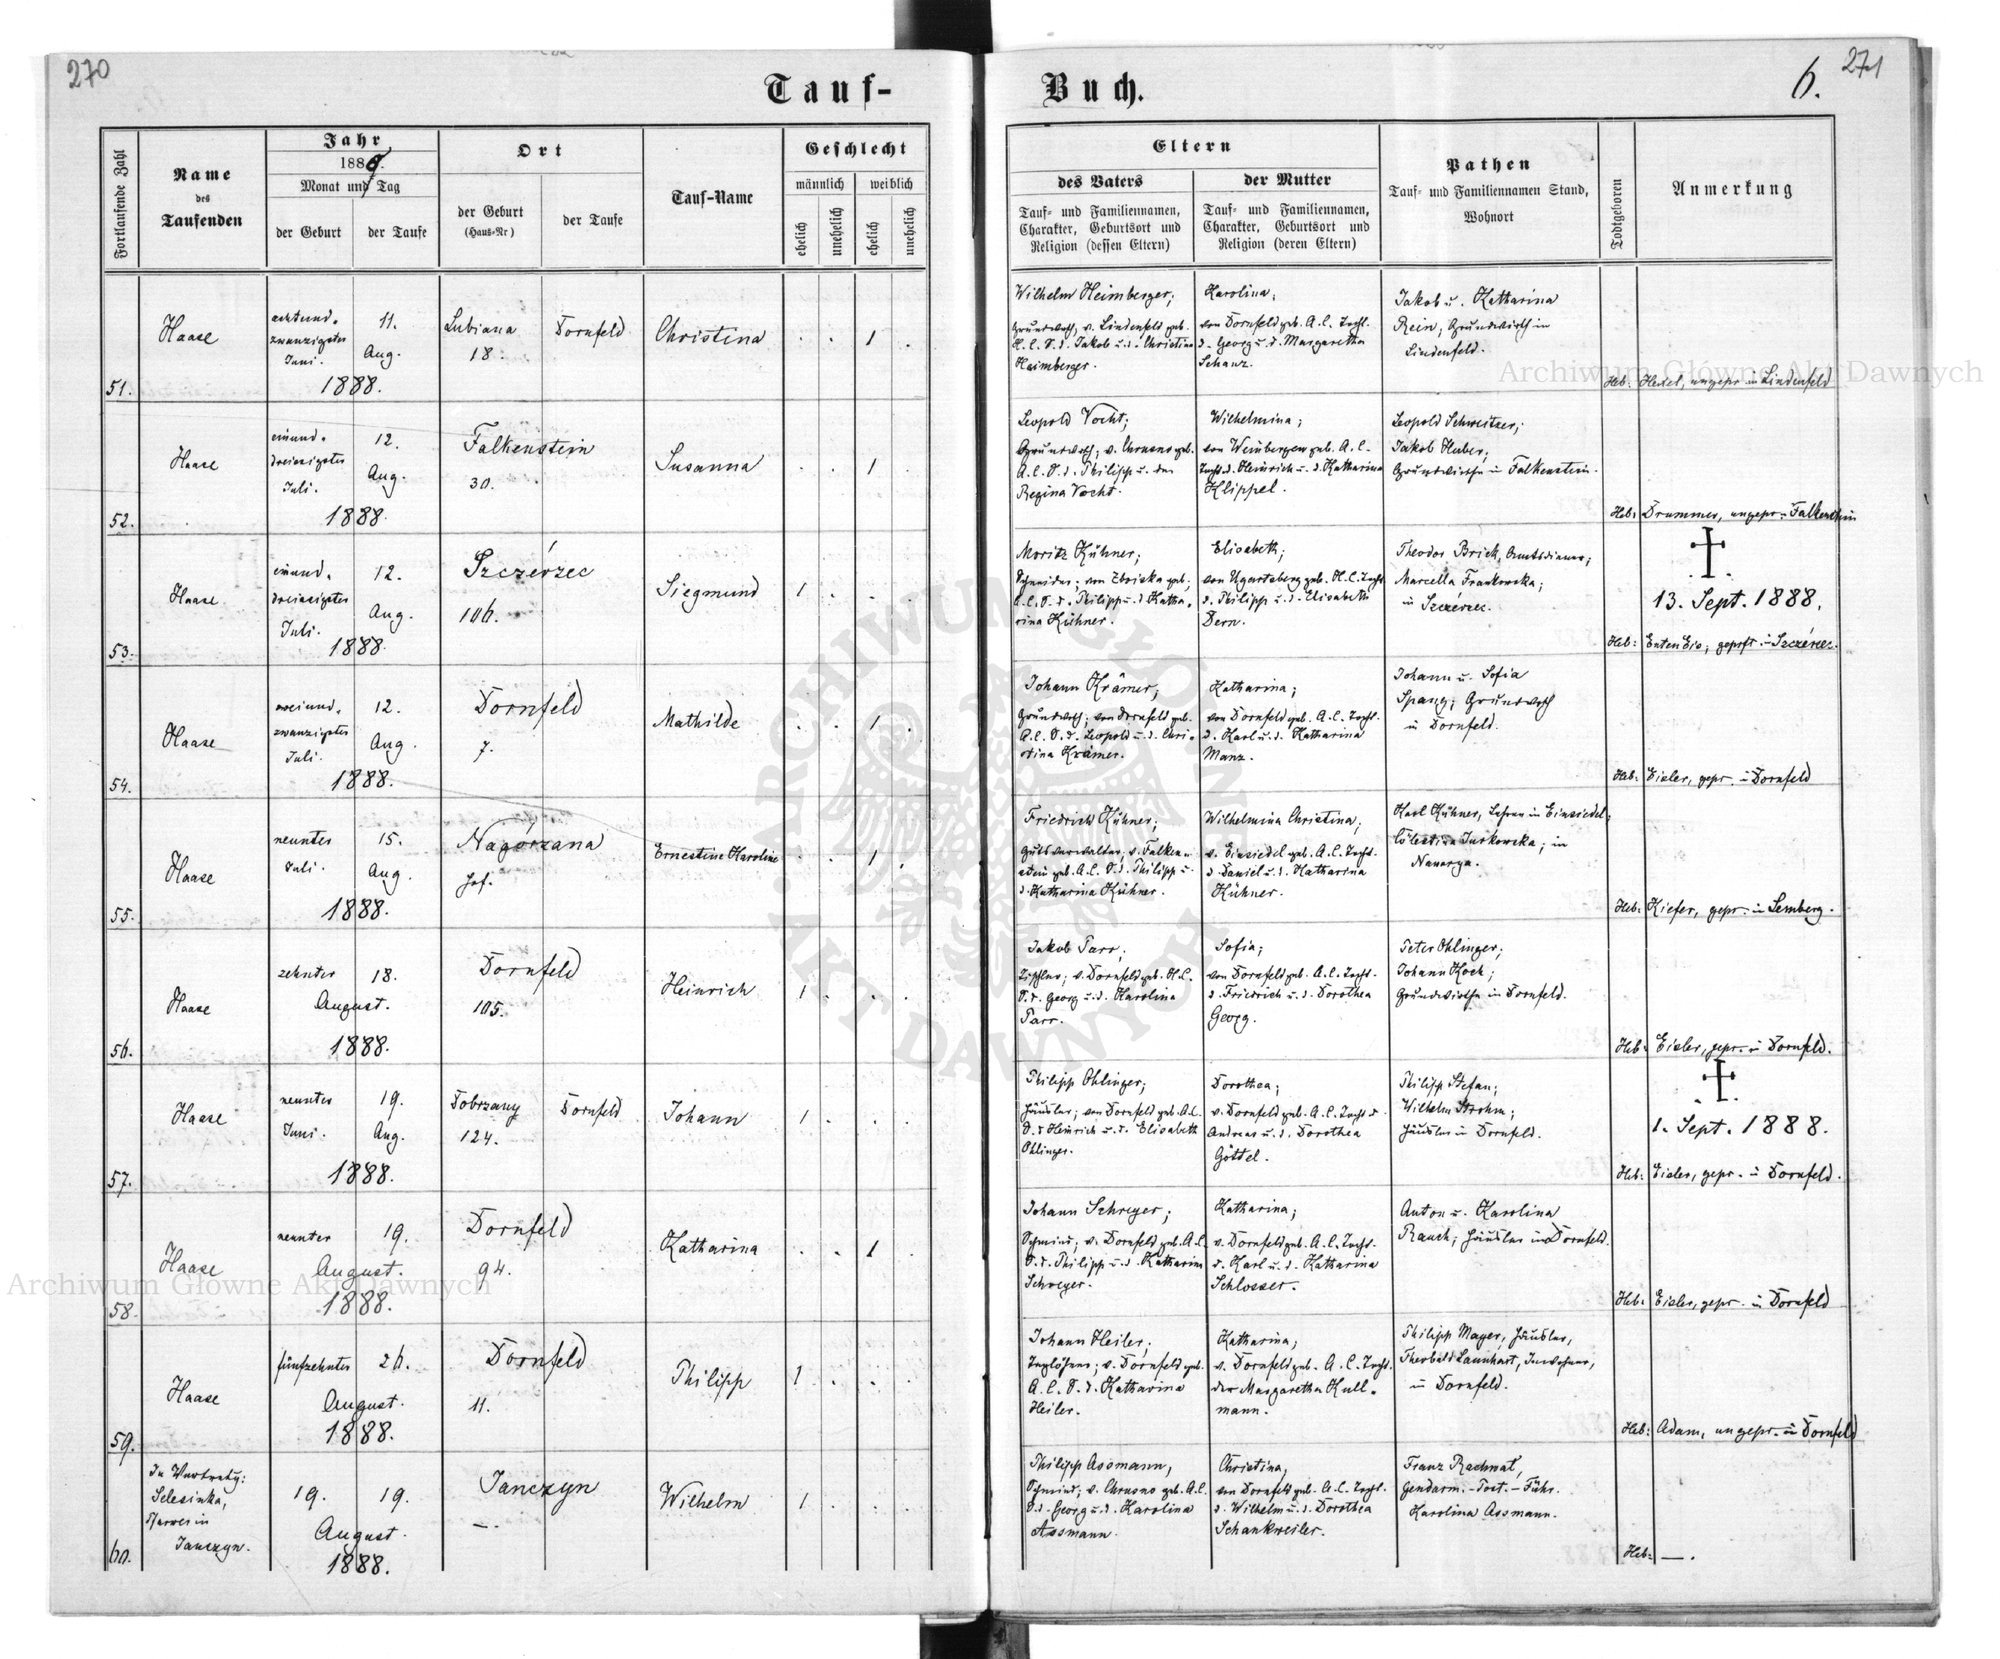 270
Tauf-
Fortlaufende Zahl
Name
des
Taufenden
Jahr
1888.
Monat und Tag
der Geburt
der Taufe
Ort
der Geburt
(Haus-Nr)
der Taufe
Tauf-Name
Geschlecht
männlich
weiblich
ehelich
unehelich
ehelich
unehelich
51.
Haase
achtund-
zwanzigster
Juni.
11.
Aug.
1888.
Lubiana
18.
Dornfeld
Christina
. . 1 .
52.
Haase
einund-
dreissigster
Juli.
12.
Aug.
1888.
Falkenstein
30.
Susanna
. . 1 .
53.
Haase
einund-
dreissigster
Juli.
12.
Aug.
1888.
Szczérzec
106.
Siegmund
1 . . .
54.
Haase
zwanzigster
Juli.
12.
Aug.
1888.
Dornfeld
7.
Mathilde
. . 1 .
55.
Haase
neunter
Juli.
15.
Aug.
1888.
Nagórzana
Hof.
Ernestine Karoline
. . 1 .
56.
Haase
zehnter
18.
August.
1888.
Dornfeld
105.
Heinrich
1 . . .
57.
Haase
neunter
Juni.
19.
Aug.
1888.
Dobrzany
124.
Dornfeld
Johann
1 . . .
58.
Haase
neunter
19.
August.
1888.
Dornfeld
94.
Katharina
. . 1 .
59.
Haase
fünfzehnter
26.
August.
1888.
Dornfeld
11.
Philipp
1 . . .
60.
In Vertretg:
Selesinka,
Pfarrer in
Janczyn.
19.
19.
August.
1888.
Janczyn
—.
Wilhelm
1 . . .
Buch.
6.
271
Eltern
des Vaters
Tauf- und Familiennamen,
Charakter, Geburtsort und
Religion (dessen Eltern)
der Mutter
Tauf- und Familiennamen,
Charakter, Geburtsort und
Religion (deren Eltern)
Pathen
Tauf- und Familiennamen Stand,
Wohnort
Todtgeboren
Anmerkung
Wilhelm Heimberger;
Grundwrth, v. Lindenfeld geb.
H. C. S. d. Jakob u. d. Christina
Heimberger.
Karolina;
von Dornfeld geb. A. C. Tocht.
d. Georg u. d. Margaretha
Schanz.
Jakob u. Katharina
Rein, Grundwirth in
Lindenfeld.
Heb: Hexel, ungepr. in Lindenfeld
Leopold Vocht;
Grundwrth; v. Chrusno geb.
A. C. S. d. Philipp u. der
Regina Vocht.
Wilhelmina;
von Weinbergen geb. A. C.
Tocht. d. Heinrich u. d. Katharina
Klippel.
Leopold Schweitzer;
Jakob Herber;
Grundwirthe in Falkenstein.
Heb: Drummer, ungepr. Falkenstein
Moritz Kühner;
Schneider; von Zboiska geb.
Philipp u. d. Katha-
rina Kühner.
Elisabeth;
von Ugartsberg geb. H. C. Tocht
d. Philipp u. d. Elisabeth
Dern.
Theodor Brick, Amtsdiener;
Marcella Frankowska;
in Szczérzec.
13. Sept. 1888.
Heb: geprft. in Szczérzec.
Johann Krämer;
Grundwrth; von Dornfeld geb.
A. C. S. d. Leopold u. d. Chri-
stina Krämer.
Katharina;
von Dornfeld geb. A. C. Tocht.
d. Karl u. d. Katharina
Manz.
Johann u. Sofia
Spang; Grundwrth
in Dornfeld.
Heb: Eisler, gepr. in Dornfeld
Friedrich Kühner;
Gutsverwalter; v. Falken-
stein geb. A. C. S. d. Philipp u.
d. Katharina Kühner.
Wilhelmina Christina;
v. Einsiedel geb. A. C. Tocht.
d. Daniel u. d. Katharina
Kühner.
Karl Kühner, Lehrer in Einsiedel;
Cölestina Jurkowska; in
Nawarya.
Heb: Kiefer, gepr. in Lemberg.
Jakob Parr;
Tischler; v. Dornfeld geb. H. C.
S. d. Georg u. d. Karolina
Parr.
Sofia;
von Dornfeld geb. A. C. Tocht.
d. Friedrich u. d. Dorothea
Georg.
Peter Ohlinger;
Johann Koch;
Grundwirthe in Dornfeld.
Heb: Eisler, gepr. in Dornfeld.
Philipp Ohlinger;
Häusler; von Dornfeld geb. A. C.
S. d. Heinrich u. d. Elisabeth
Ohlinger.
Dorothea;
v. Dornfeld geb. A. C. Tocht d.
Andreas u. d. Dorothea
Göttel.
Philipp Stefan;
Wilhelm Strohm;
Häusler in Dornfeld.
1. Sept. 1888.
Heb: Eisler, gepr. in Dornfeld.
Johann Schreyer;
Schmied; v. Dornfeld geb. A. C.
S. d. Philipp u. d. Katharina
Schreyer.
Katharina;
v. Dornfeld geb. A. C. Tocht.
d. Karl u. d. Katharina
Schlosser.
Anton u. Karolina
Rauch; Häusler in Dornfeld.
Heb: Eisler, gepr. in Dornfeld
Johann Heiler;
Taglöhner; v. Dornfeld geb.
A. C. S. d. Katharina
Heiler.
Katharina;
v. Dornfeld geb. A. C. Tocht.
der Margaretha Kull-
mann.
Philipp Mayer, Häusler,
Theobald Launhart, Inwohner,
in Dornfeld.
Heb: Adam, ungepr. in Dornfeld
Philipp Assmann,
Schmied; v. Chrusno geb. A. C.
S. d. Georg u. d. Karolina
Assmann.
Christina;
von Dornfeld geb. A. C. Tocht.
d. Wilhelm u. d. Dorothea
Schankweiler.
Franz Rachwal,
Gendarm.-Post.-Führ.
Karolina Assmann.
Heb: —.
Archiwum Główne Akt Dawnych
Archiwum Główne Akt Dawnych
ARCHIWUM GŁÓWNE
AKT DAWNYCH